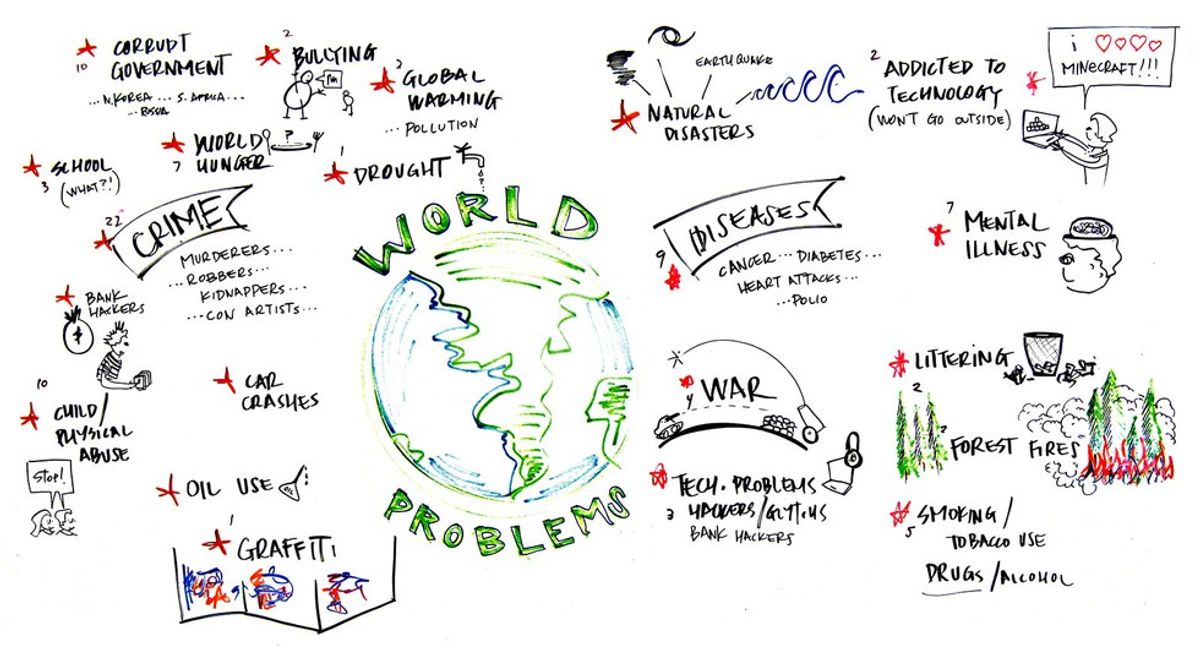 CORRUPT
10 GOVERNMENT
... N. KOREA ... S. AFRICA ...
... RUSSIA
2
BULLYING
GLOBAL
WARMING
... POLLUTION
WORLD ?
7 HUNGER
SCHOOL
3 (WHAT?!)
1
DROUGHT
?
22
CRIME
MURDERERS...
...ROBBERS...
KIDNAPPERS...
...CON ARTISTS...
BANK
HACKERS
$
10
CHILD/
PHYSICAL
ABUSE
STOP!
CAR
CRASHES
OIL USE
OIL
1
GRAFFITI
WORLD
PROBLEMS
EARTHQUAKE
NATURAL
DISASTERS
2
ADDICTED TO
TECHNOLOGY
(WON'T GO OUTSIDE)
i ♡♡♡♡
MINECRAFT!!!
DISEASES
9
CANCER... DIABETES...
HEART ATTACKS...
...POLIO
7
MENTAL
ILLNESS
4 WAR
TECH. PROBLEMS
3 HACKERS/GLITCHES
BANK HACKERS
LITTERING
2
FOREST FIRES
SMOKING/
5 TOBACCO USE
DRUGS/ALCOHOL